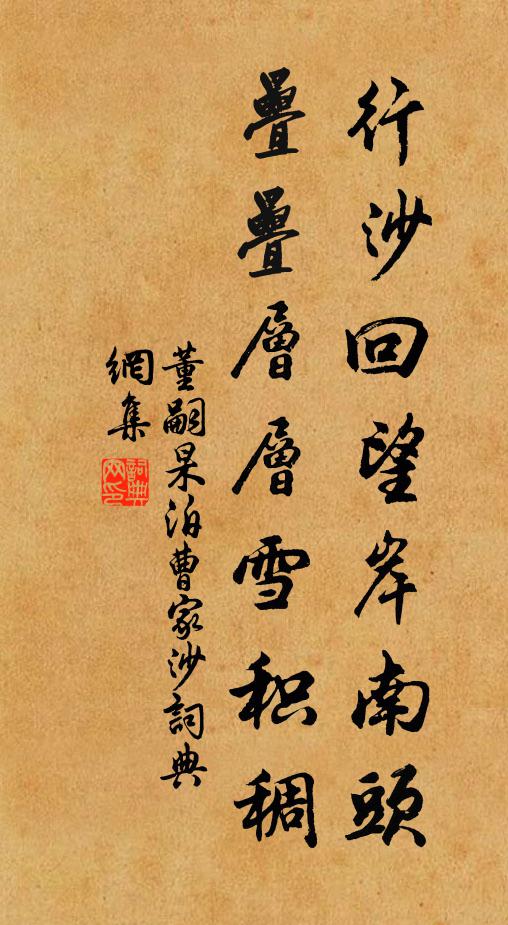 行沙回望岸南頭
疊疊層層雪积稠
董嗣杲泊曹家沙詞典
網集
詞典
网印